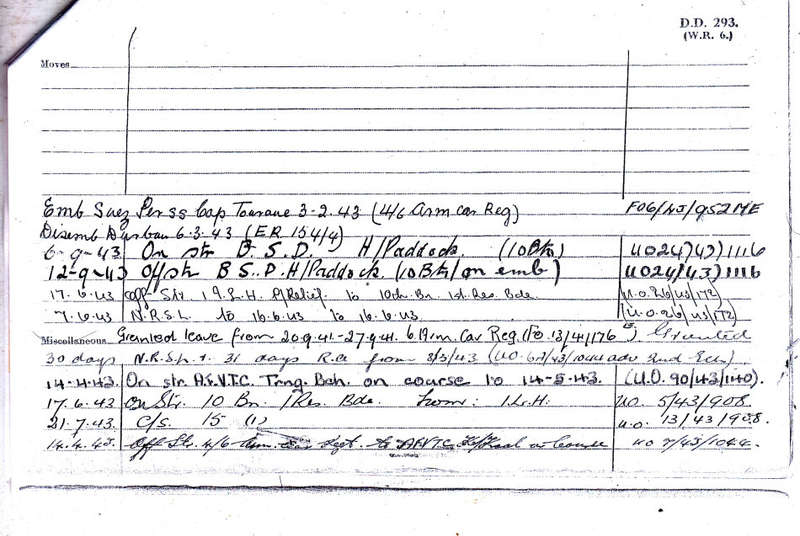 D.D. 293.
(W.R. 6.)
Moves
Emb Suez Per ss Cap Tourane 3-2.43 (4/6 Arm Car Reg) F06/43/952 ME
Disemb Durban 6.3.43 (ER 154/4)
6-9-43 On str B.S.D. H/Paddock. (10Btn) UO24(43)1116
12-9-43 Off str B.S.P. H/Paddock (10Btn/on emb) UO24(43)1116
17.6.43 Off Str 1 P/Relief. to 10th Bn. 1st. Res. Bde. U.O.26/43/172)
7.6.43 N.R.S.L. to 16.6.43 (U.O.26/43/172)
Miscellaneous Granted leave from 20.9.41-27.9.41. Car Reg. Granted
30 days 31 days from 8/3/43
14-4.43. On str. A.F.V.T.C. Trng. Bch. on course to 14-5.43. (U.O. 90/43/1140).
17.6.43 On Str. 10 Bn. 1 Res. Bde. from: I.L.H. UO. 5/43/908.
21.7.43. C/S. 15 (1) U.O. 13/43/908.
14.4.43. Off Str. 4/6 Arm. Car Regt. to AFVTC UO 7/43/1044.